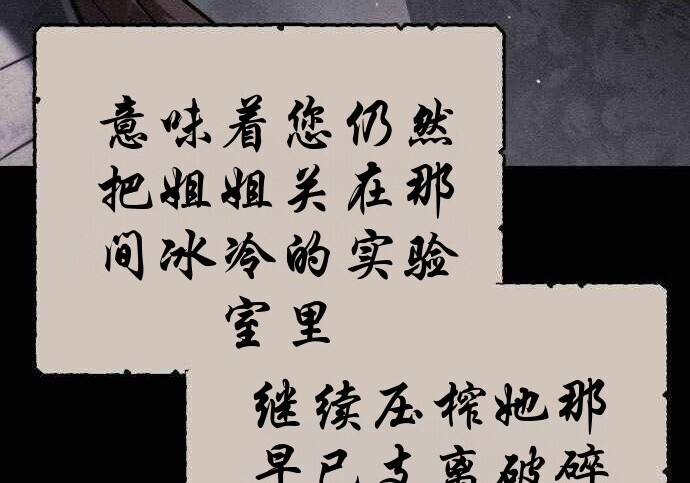 意味着您仍然
把姐姐关在那
间冰冷的实验
室里
继续压榨她那
早已支离破碎